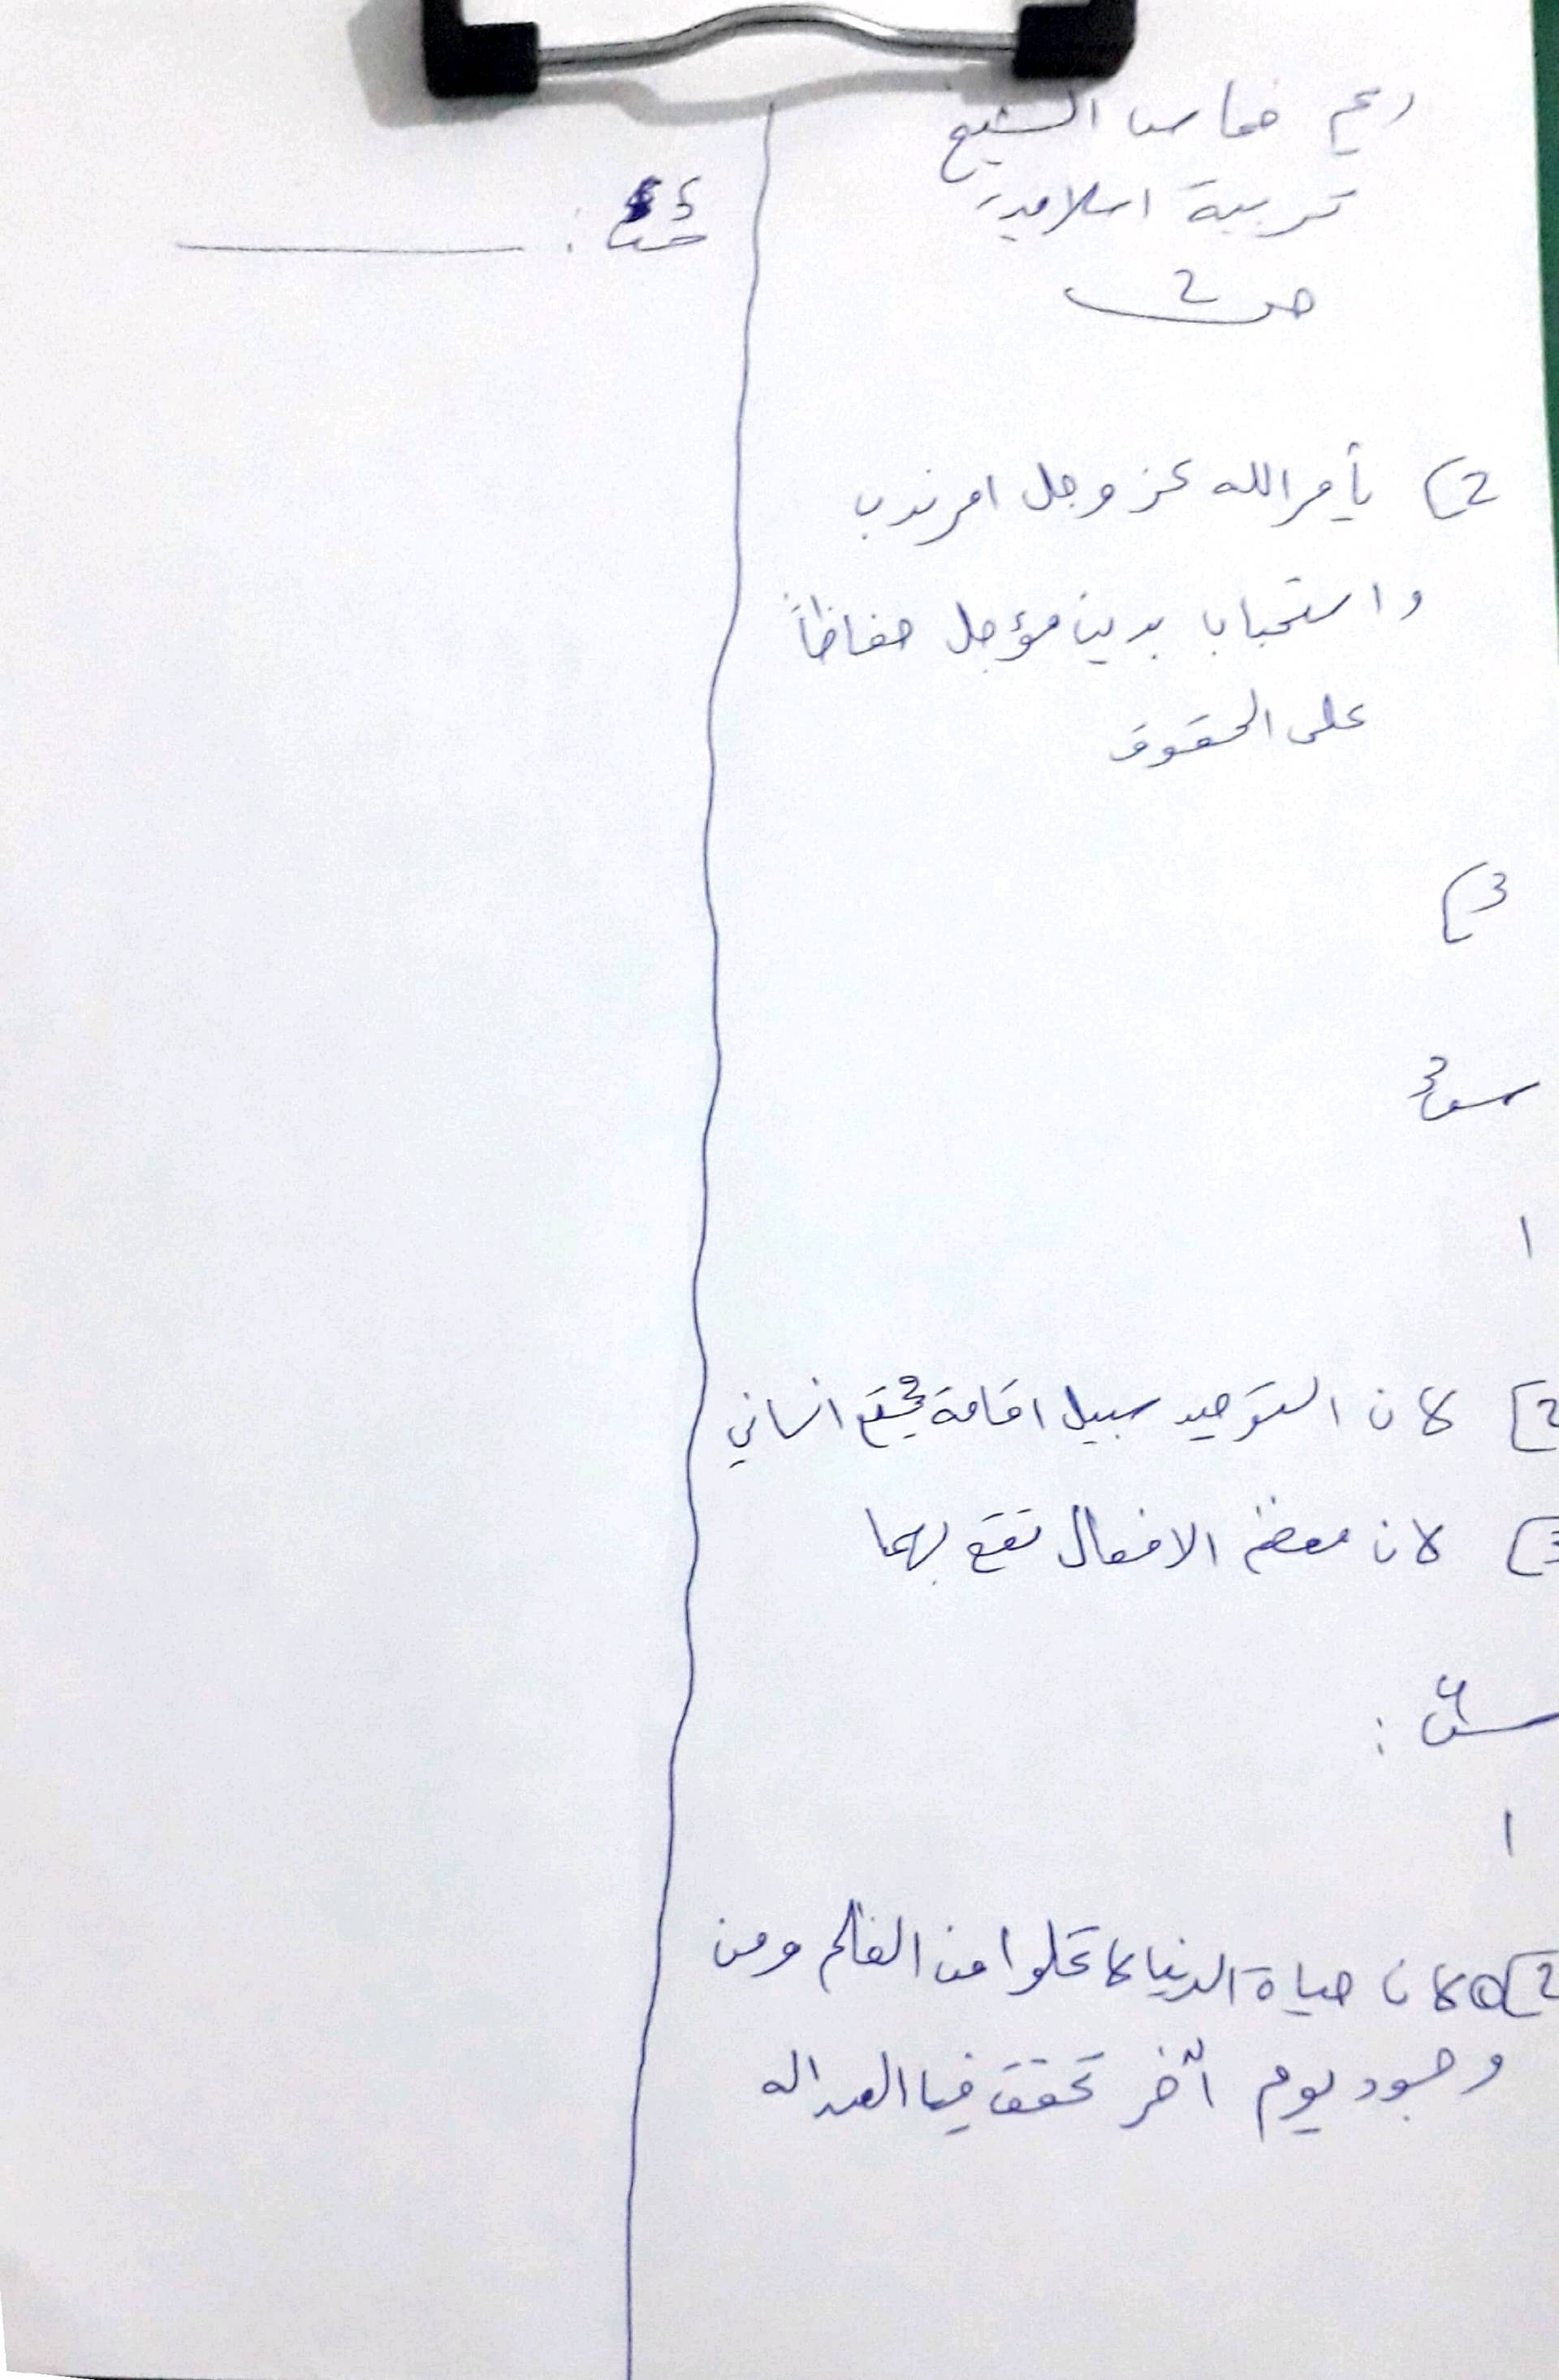 تربية اسلامية
ص2
2) يأمر الله عز وجل امر ندب
واستحبابا بدين مؤجل حفاظاً
على الحقوق
3)
س3
1
2) لان التوحيد سبيل اقامة مجتمع انساني
3) لان معظم الافعال تقع بهما
س4 :
1
2) لان حياة الدنيا لا تخلوا من الظلم ومن
وجود يوم آخر تحقق فيها العداله